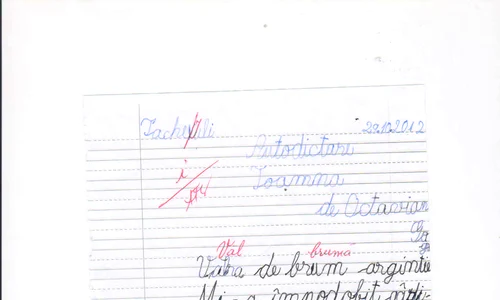 22.10.2012
Autodictare
Toamna
de Octavian
i
Văl brumă
Vatra de brum argintie
Mi-a împodobit